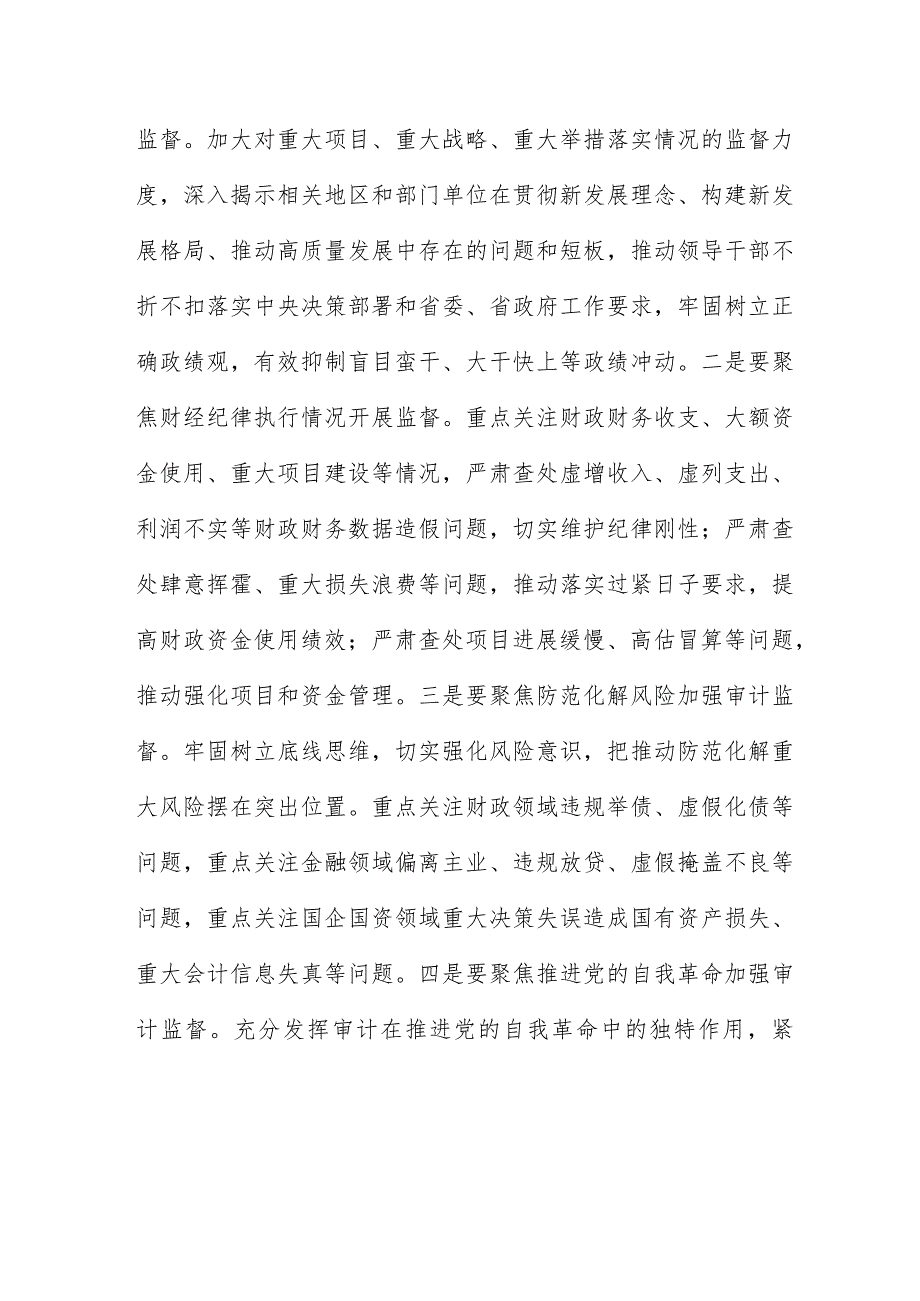 监督。加大对重大项目、重大战略、重大举措落实情况的监督力
度，深入揭示相关地区和部门单位在贯彻新发展理念、构建新发
展格局、推动高质量发展中存在的问题和短板，推动领导干部不
折不扣落实中央决策部署和省委、省政府工作要求，牢固树立正
确政绩观，有效抑制盲目蛮干、大干快上等政绩冲动。二是要聚
焦财经纪律执行情况开展监督。重点关注财政财务收支、大额资
金使用、重大项目建设等情况，严肃查处虚增收入、虚列支出、
利润不实等财政财务数据造假问题，切实维护纪律刚性；严肃查
处肆意挥霍、重大损失浪费等问题，推动落实过紧日子要求，提
高财政资金使用绩效；严肃查处项目进展缓慢、高估冒算等问题，
推动强化项目和资金管理。三是要聚焦防范化解风险加强审计监
督。牢固树立底线思维，切实强化风险意识，把推动防范化解重
大风险摆在突出位置。重点关注财政领域违规举债、虚假化债等
问题，重点关注金融领域偏离主业、违规放贷、虚假掩盖不良等
问题，重点关注国企国资领域重大决策失误造成国有资产损失、
重大会计信息失真等问题。四是要聚焦推进党的自我革命加强审
计监督。充分发挥审计在推进党的自我革命中的独特作用，紧